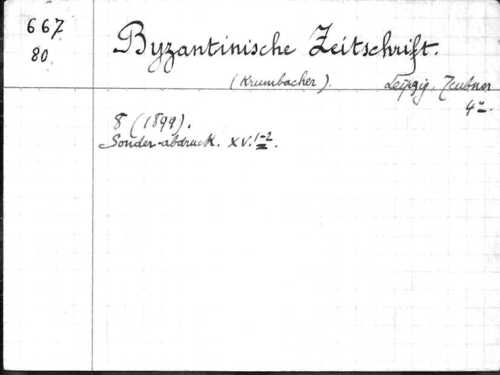 667
80.
Byzantinische Zeitschrift.
(Krumbacher). Leipzig. Teubner
4º
8 (1899).
Sonder-abdruck. XV.1-2.